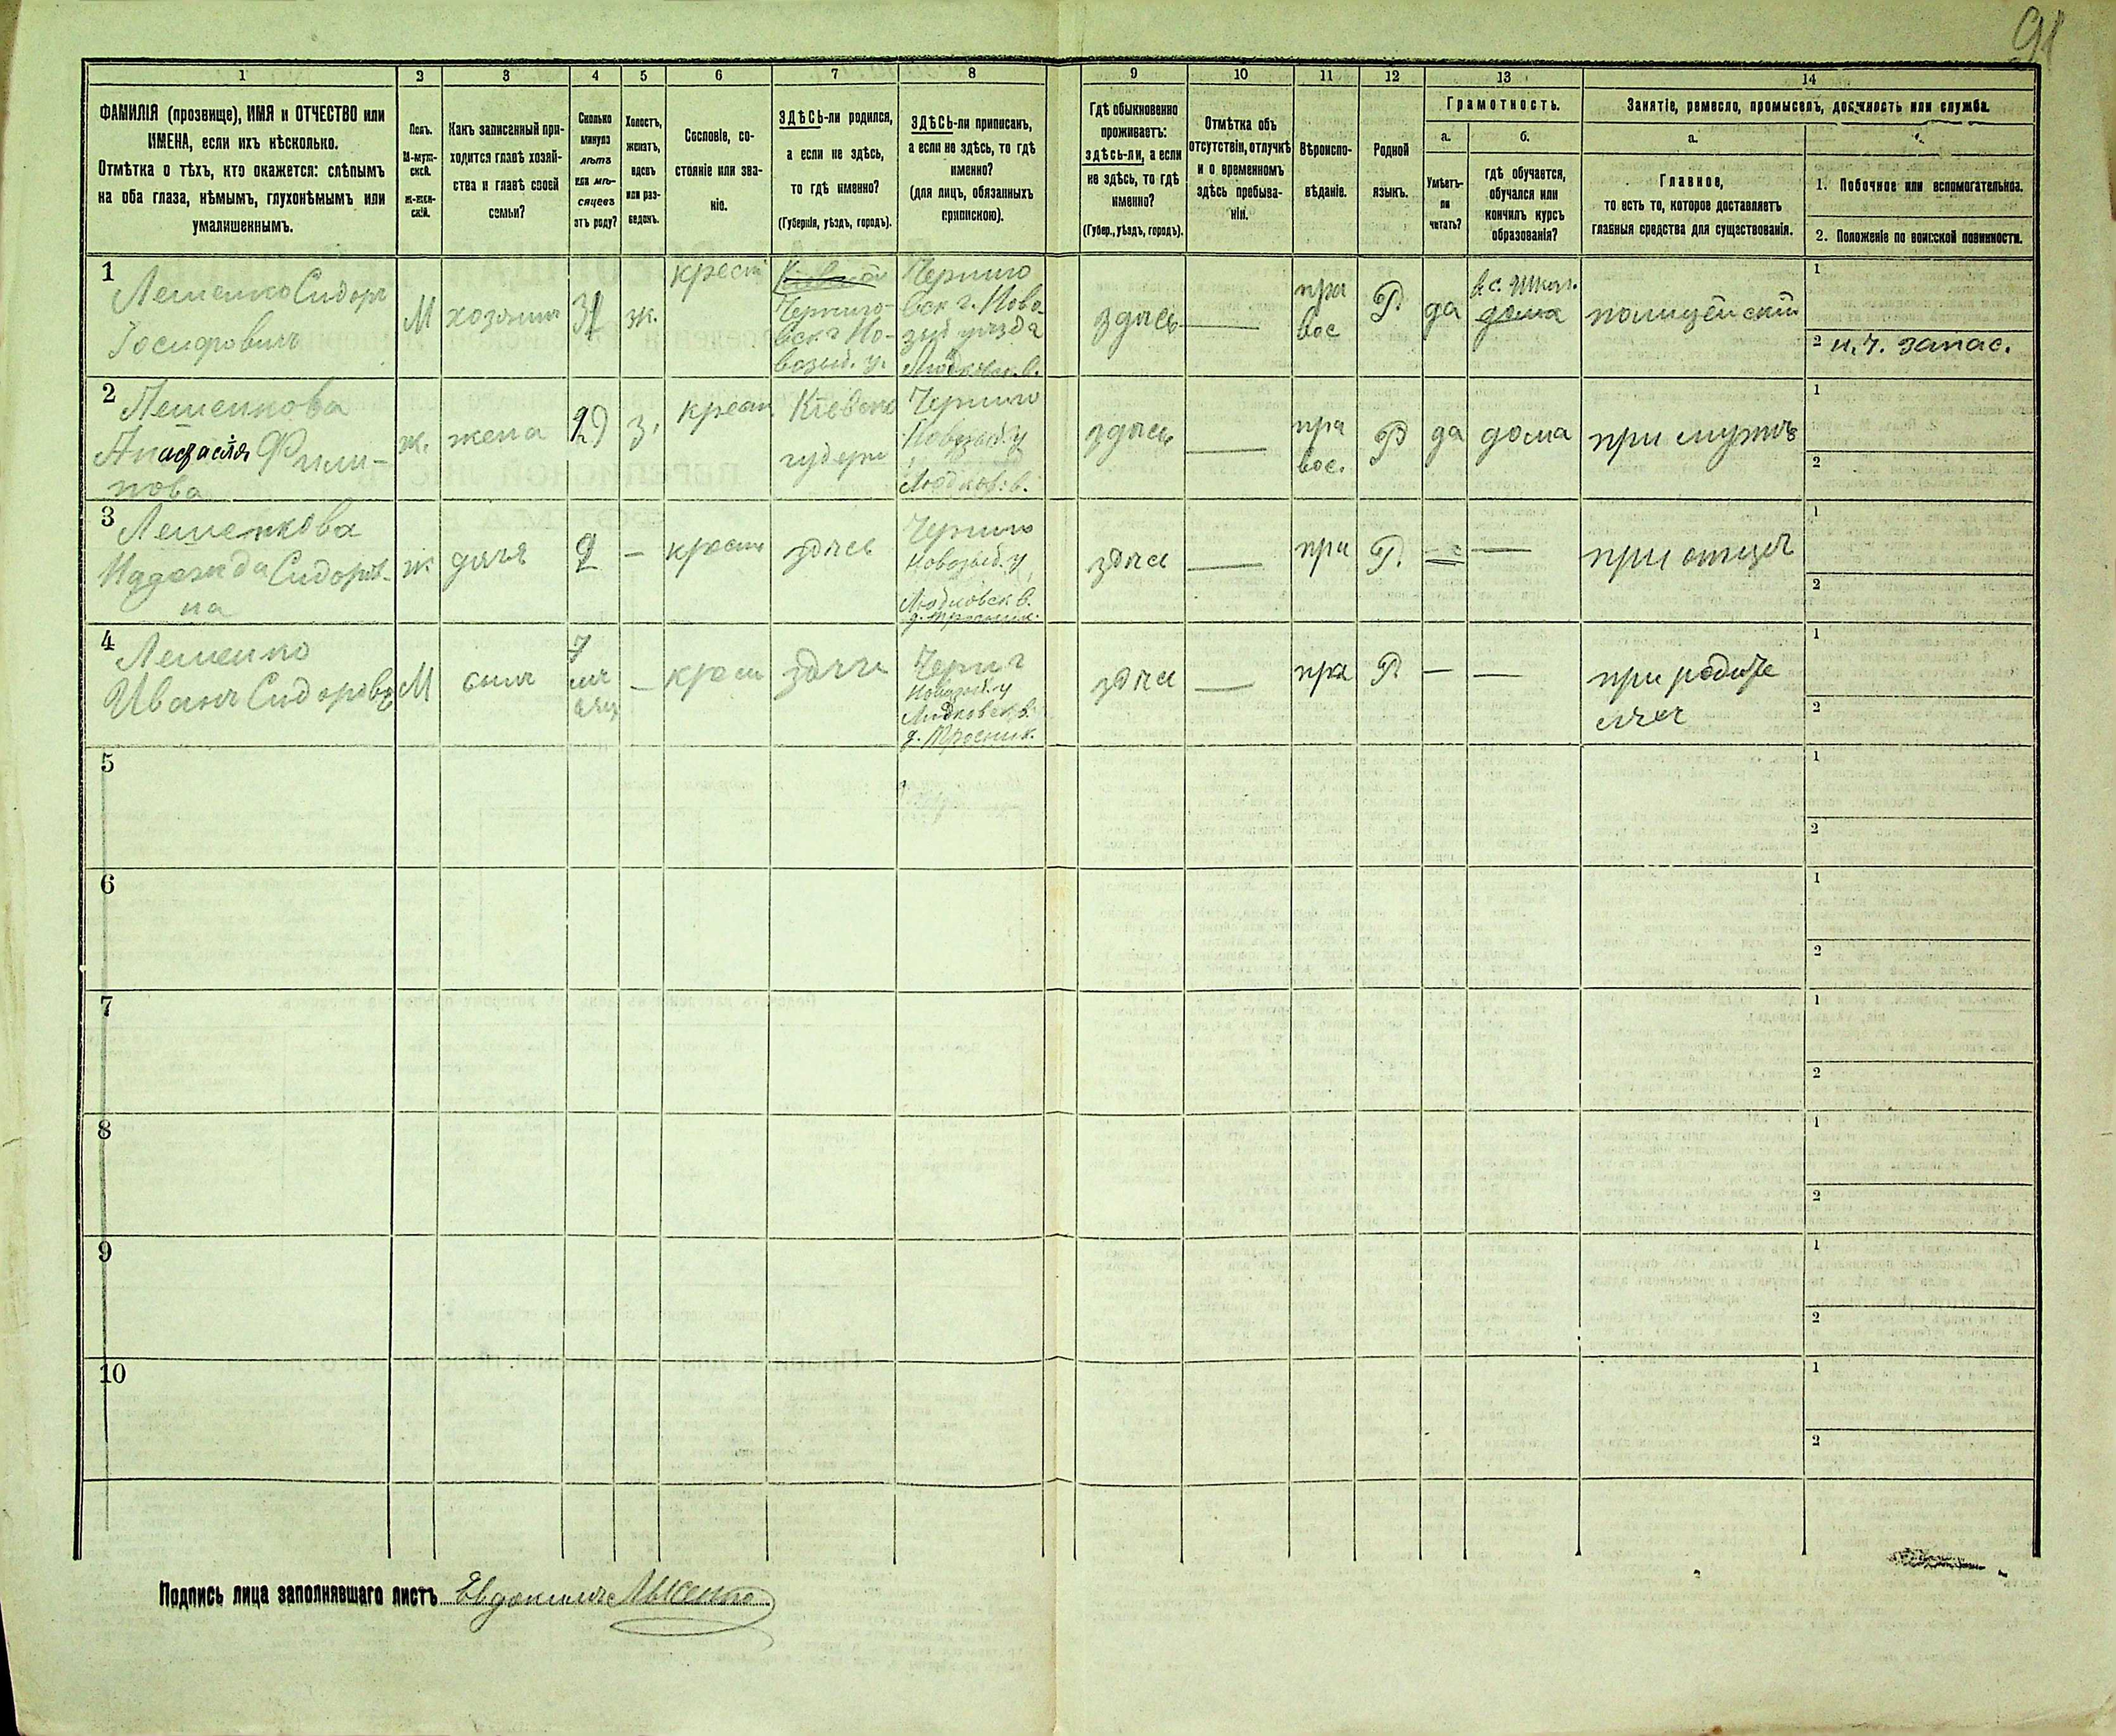 91
1 2 3 4 5 6 7 8 9 10 11 12 13 14
ФАМИЛІЯ (прозвище), ИМЯ и ОТЧЕСТВО или
ИМЕНА, если ихъ нѣсколько.
Отмѣтка о тѣхъ, кто окажется: слѣпымъ
на оба глаза, нѣмымъ, глухонѣмымъ или
умалишеннымъ.
Полъ.
М-муж-
ской.
ж-жен-
скій.
Какъ записанный при-
ходится главѣ хозяй-
ства и главѣ своей
семьи?
Сколько
минуло
лѣтъ
или мѣ-
сяцевъ
отъ роду?
Холостъ,
женатъ,
вдовъ
или раз-
веденъ.
Сословіе, со-
стояніе или зва-
ніе.
ЗДѢСЬ-ли родился,
а если не здѣсь,
то гдѣ именно?
(Губернія, уѣздъ, городъ).
ЗДѢСЬ-ли приписанъ,
а если не здѣсь, то гдѣ
именно?
(для лицъ, обязанныхъ
припискою).
Гдѣ обыкновенно
проживаетъ:
здѣсь-ли, а если
не здѣсь, то гдѣ
именно?
(Губер., уѣздъ, городъ).
Отмѣтка объ
отсутствіи, отлучкѣ
и о временномъ
здѣсь пребыва-
ніи.
Вѣроиспо-
вѣданіе.
Родной
языкъ.
Грамотность.
а.
Умѣетъ-
ли
читать?
б.
гдѣ обучается,
обучался или
кончилъ курсъ
образованія?
Занятіе, ремесло, промыселъ, должность или служба.
а.
Главное,
то есть то, которое доставляетъ
главныя средства для существованія.
1. Побочное или вспомогательное.
2. Положеніе по воинской повинности.
1
Лешенко Сидоръ
Іосифовичъ
М
хозяинъ
31
ж.
крест
Черниго-
вск г Но-
возыб. у.
Черниго
вск г. Ново-
зыб уѣзда
Людковск. в.
здѣсь
—
пра
вос
Р.
да
дома
полицейскій
1
2 н. ч. запас.
2
Лешенкова
Анастасія Фили-
пова
ж.
жена
29
з.
крест
Кіевско
губерн
Черниго
Новозыб. у
Людков: в.
здѣсь
—
пра
вос.
Р
да
дома
при мужѣ
1
2
3
Лешенкова
Надежда Сидоров-
на
ж
дочь
2
—
крест
здѣсь
Черниго
Новозыб. у
Людковск в.
здѣсь
—
пра
Р.
—
—
при отцѣ
1
2
4
Лешенко
Иванъ Сидоровъ
М
сынъ
7
мѣс
яцъ
—
крест
здѣсь
Черн г
Новозыб. у
Людковск в.
здѣсь
—
пра
Р
—
—
при родите
ляхъ
1
2
5
1
2
6
1
2
7
1
2
8
1
2
9
1
2
10
1
2
Подпись лица заполнявшаго листъ Евдокимъ